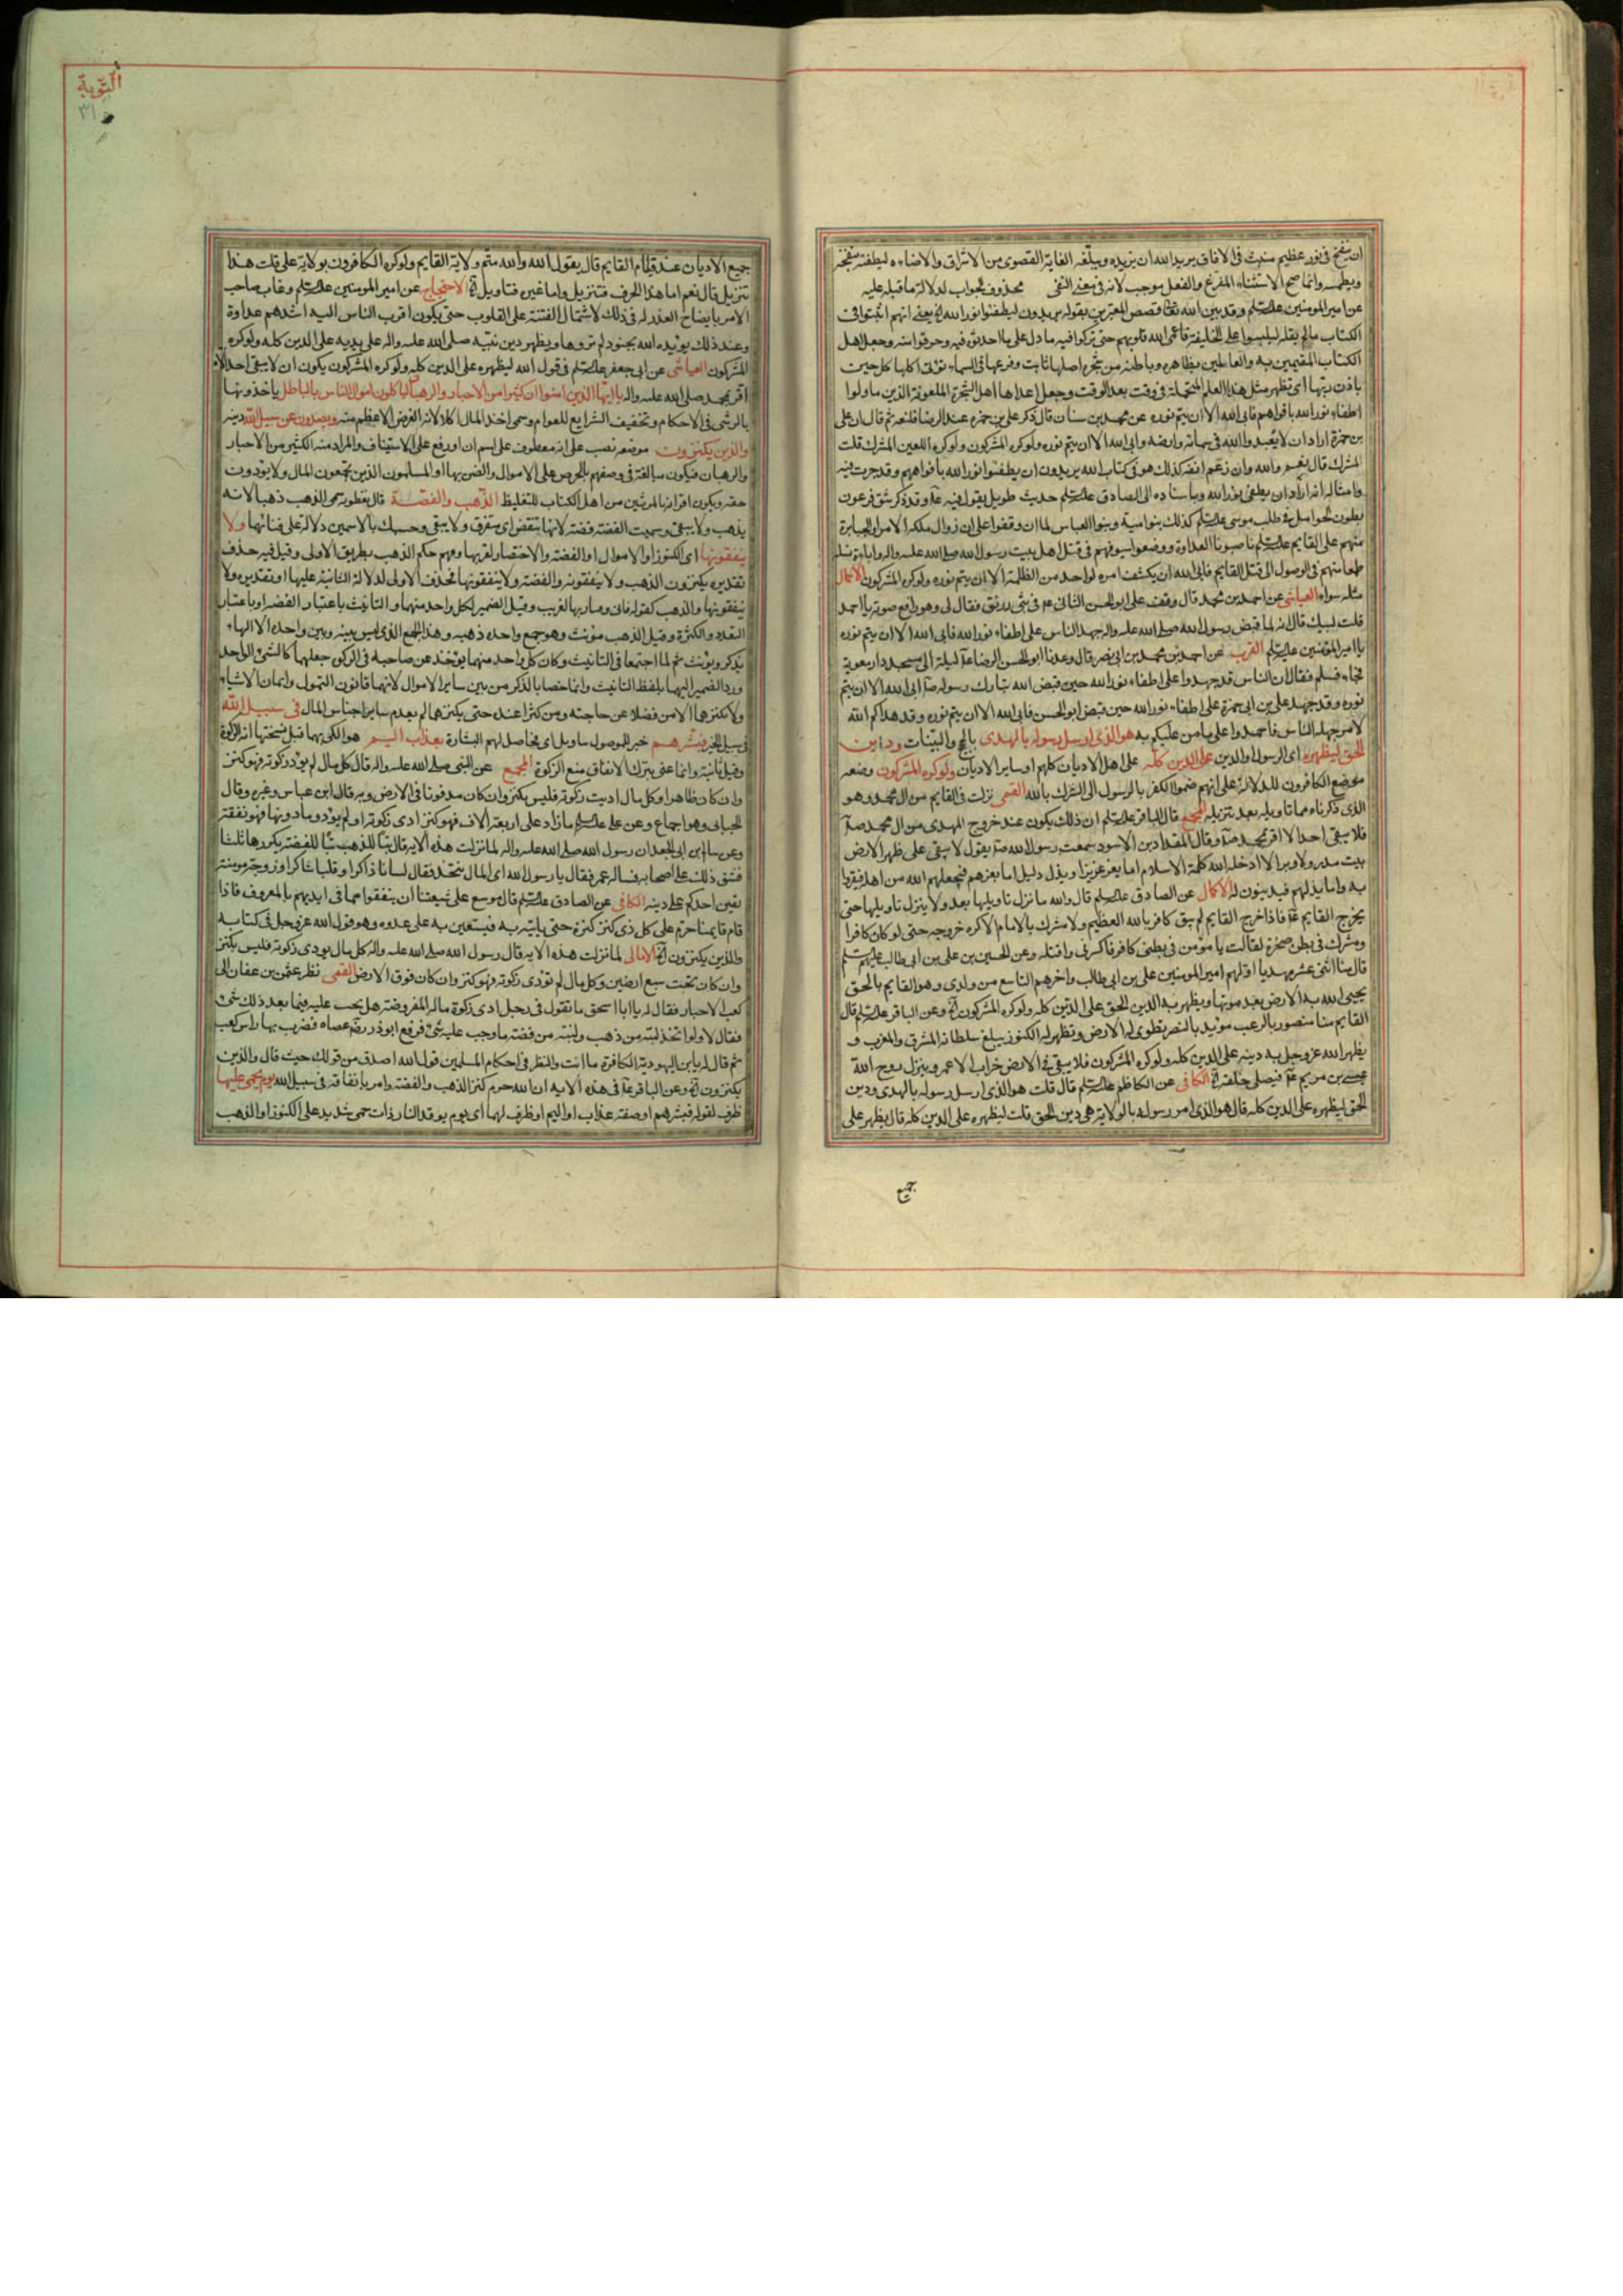 ان ينفخ فى نور عظيم منبث فى الافاق يريد الله ان يزيده ويبلغه الغاية القصوى من الاشراق والاضاءه ليطفئه بنفخه
ويطمسه وانما صح الاستثناء المفرغ والفعل موجب لانه فى معنى النفى محذوف الجواب لدلالة ما قبله عليه
عن امير المومنين عليه السلم وقد بين الله تعا قصص المغيرين بقوله يريدون ليطفئوا نور الله يعنى انهم اثبتوا فى
الكتاب مالم يقله ليلبسوا على الخليفة فاعمى الله قلوبهم حتى تركوا فيه ما دل على ما احدثوا فيه وحرفوا منه وجعل اهل
الكتاب المقيمين به والعاملين بظاهره وباطنه من شجرة اصلها ثابت وفرعها فى السماء تؤتى اكلها كل حين
باذن ربها اى تظهر مثل هذا العلم المحتملة فى وقت بعد الوقت وجعل اعداها اهل الشجرة الملعونة الذين حاولوا
اطفاء نور الله بافواههم فابى الله الا ان يتم نوره عن محمد بن سنان قال ذكر على بن حمزه عند الرضا فلعنه ثم قال ان على
بن حمزة اراد ان لا يعبد والله فى سمائه وارضه وابى الله الا ان يتم نوره ولو كره المشركون ولو كره اللعين المشرك قلت
المشرك قال نعم والله وان زعم انفه كذلك هو فى كتاب الله يريدون ان يطفئوا نور الله بافواههم وقد جرت فيه
وامثاله انه اراد ان يطفى نور الله وباسناده الى الصادق عليه السلم حديث طويل يقول فيه وقد ذكر شق فرعون
بطون الحوامل فى طلب موسى عليه السلم كذلك بنو امية وبنو العباس لما ان وقفوا على ان زوال ملك الامراء والجبابرة
منهم على القايم عليه السلم ناصبونا العداوة ووضعوا سيوفهم فى قتل اهل بيت رسول الله صلى الله عليه واله وابادة نسله
طمعا منهم فى الوصول الى قتل القايم فابى الله ان يكشف امره لواحد من الظلمة الا ان يتم نوره ولو كره المشركون الاكمال
مثله سواء العياشى عن احمد بن محمد قال وقف على ابو الحسن الثانى عم فى بنى زريق فقال لى وهو رافع صوته يا احمد
قلت لبيك قال انه لما قبض رسول الله صلى الله عليه واله جهد الناس على اطفاء نور الله فابى الله الا ان يتم نوره
بامير المؤمنين عليه السلم القرب عن احمد بن محمد بن ابى نصر قال وعدنا ابو الحسن الرضا ليلة الى مسجد دار معوية
فجاء فسلم فقال ان الناس قد جهدوا على اطفاء نور الله حين قبض الله تبارك رسوله صآ ابى الله الا ان يتم
نوره وقد جهد على بن ابى حمزة على اطفاء نور الله حين قبض ابو الحسن فابى الله الا ان يتم نوره وقد هداكم الله
لامر جهله الناس فاحمدوا على ما من عليكم به هو الذى ارسل رسوله بالهدى بالحج والبينات ودين
الحق ليظهره اى الرسول او الدين على الدين كله على اهل الاديان كلهم او ساير الاديان ولو كره المشركون وضعه
موضع الكافرون للدلالة على انهم ضموا الكفر بالرسول الى الشرك بالله القمى نزلت فى القايم من ال محمد وهو
الذى ذكرناه مما تاويله بعد تنزيله المجمع قال الباقر عليه السلم ان ذلك يكون عند خروج المهدى من ال محمد صآ
فلا يبقى احد الا اقر بمحمد صآ وقال المقداد بن الاسود سمعت رسول الله صآ يقول لا يبقى على ظهر الارض
بيت مدر ولا وبر الا ادخله الله كلمة الاسلام اما بعز عزيز او بذل ذليل اما بعزهم فيجعلهم الله من اهله فيعزوا
به واما يذلهم فيدينون له الاكمال عن الصادق عليه السلم قال والله ما نزل تاويلها بعد ولا ينزل تاويلها حتى
يخرج القايم عآ فاذا خرج القايم لم يبق كافر بالله العظيم ولا مشرك بالامام الا كره خروجه حتى لو كان كافرا
ومشرك فى بطن صخرة لقالت يا مؤمن فى بطنى كافر فاكسرنى واقتله وعن الحسين بن على بن ابى طالب عليهم السلم
قال منا اثنى عشر مهديا اولهم امير المومنين على بن ابى طالب واخرهم التاسع من ولدى وهو القايم بالحق
يحيى الله به الارض بعد موتها ويظهر به الدين الحق على الدين كله ولو كره المشركون وعن الباقر عليه السلم قال
القايم منا منصور بالرعب مويد بالنصر تطوى له الارض وتظهر له الكنوز يبلغ سلطانه المشرق والمغرب و
يظهر الله عز وجل به دينه على الدين كله ولو كره المشركون فلا يبقى فى الارض خراب الا عمر وينزل روح الله
عيسى بن مريم عآ فيصلى خلفه الكافى عن الكاظم عليه السلم قال قلت هو الذى ارسل رسوله بالهدى ودين
الحق ليظهره على الدين كله قال هو الذى امر رسوله بالولاية هى دين الحق قلت ليظهره على الدين كله قال يظهر على
جميع
التوبة
٣١
جميع الاديان عند قيام القايم قال يقول الله والله متم ولاية القايم ولو كره الكافرون بولاية على قلت هذا
تنزيل قال نعم اما هذا الحرف فتنزيل واما غيره فتاويل الاحتجاج عن امير المومنين عليه السلم وغاب صاحب
الامر بايضاح العذر له فى ذلك لاشتمال الفتنة على القلوب حتى يكون اقرب الناس اليه اشدهم عداوة
وعند ذلك يؤيده الله بجنود لم تروها ويظهر دين نبيه صلى الله عليه واله على يديه على الدين كله ولو كره
المشركون العياشى عن ابى جعفر عليه السلم فى قول الله ليظهره على الدين كله ولو كره المشركون يكون ان لا يبقى احد الا
اقر بمحمد صلى الله عليه واله يا ايها الذين امنوا ان كثيرا من الاحبار والرهبان لياكلون اموال الناس بالباطل ياخذونها
بالرشى فى الاحكام وتخفيف الشرايع للعوام وسمى اخذ المال اكلا لانه الغرض الاعظم منه ويصدون عن سبيل الله دينه
والذين يكنزون موضعه نصب على انه معطوف على اسم ان او رفع على الاستيناف والمراد منه الكثير من الاحبار
والرهبان فيكون مبالغة فى وصفهم بالحرص على الاموال والضن بها او المسلمون الذين يجمعون المال ولا يودون
حقه ويكون اقترانه بالمرتشين من اهل الكتاب للتغليظ الذهب والفضة قال نفطويه سمى الذهب ذهبا لانه
يذهب ولا يبقى وسميت الفضه فضه لانها تنفض اى تتفرق ولا يبقى وحسبك بالاسمين دلالة على فنائهما ولا
ينفقونها اى الكنوز او الاموال او الفضه والاختصار لقربها وفهم حكم الذهب بطريق الاولى وقيل فيه حذف
تقديره يكنزون الذهب ولا ينفقونه والفضة ولا ينفقونها فحذف الاولى لدلالة الثانية عليها او تقديره ولا
ينفقونها والذهب كقوله فانى وقيار بها لغريب وقيل الضمير لكل واحد منهما والتانيث باعتبار الفضه او باعتبار
التعدد والكثرة وقيل الذهب مؤنث وهو جمع واحده ذهبه وهذا الجمع الذى ليس بينه وبين واحده الا الهاء
يذكر ويونث ثم لما اجتمعا فى التانيث وكان كل واحد منهما يوخذ عن صاحبه فى الزكوة جعلهما كالشئ الواحد
ورد الضمير اليهما بلفظ التانيث وانما خصا بالذكر من بين ساير الاموال لانهما قانون التمول واثمان الاشياء
ولا يكنزهما الا من فضلا عن حاجته ومن كثرا عنده حتى يكنزهما لم يعدم ساير اجناس المال فى سبيل الله
فى سبيل الخير فبشرهم خبر للموصول بتاويل اى فحاصل لهم البشارة بعذاب اليم هو الكى بهما قيل نسختها اية الزكوة
وقيل ثابتة وانما عنى بترك الانفاق منع الزكوة المجمع عن النبى صلى الله عليه واله قال كل مال لم يود زكوته فهو كنز
وان كان ظاهرا وكل مال اديت زكوته فليس بكنز وان كان مدفونا فى الارض وبه قال ابن عباس وغيره وقال
الجبائى وهو اجماع وعن على عليه السلم ما زاد على اربعة الاف فهو كنز ادى زكوته او لم يود وما دونها فهو نفقة
وعن سالم بن ابى الجعد ان رسول الله صلى الله عليه واله لما نزلت هذه الايه قال تبا للذهب تبا للفضه يكررها ثلثا
فشق ذلك على اصحابه فساله عمر فقال يا رسول الله اى المال نتخذ فقال لسانا ذاكرا وقلبا شاكرا وزوجة مومنة
تعين احدكم على دينه الكافى عن الصادق عليه السلم قال موسع على شيعتنا ان ينفقوا مما فى ايديهم بالمعروف فاذا
قام قايمنا حرم على كل ذى كنز كنزه حتى ياتيه به فيستعين به على عدوه وهو قول الله عز وجل فى كتابه
والذين يكنزون الامالى لما نزلت هذه الايه قال رسول الله صلى الله عليه واله كل مال يودى زكوته فليس بكنز
وان كان تحت سبع ارضين وكل مال لم تؤدى زكوته فهو كنز وان كان فوق الارض القمى نظر عثمن بن عفان الى
كعب الاحبار فقال له يا ابا اسحق ما تقول فى رجل ادى زكوة ماله المفروضة هل يجب عليه فيما بعد ذلك شئ
فقال لا ولو اتخذ لبنة من ذهب ولبنة من فضه ما وجب عليه شئ فرفع ابوذر رضه عصاه فضرب بها راس كعب
ثم قال له يابن اليهودية الكافرة ما انت والنظر فى احكام المسلمين قول الله اصدق من قولك حيث قال والذين
يكنزون وعن الباقر عآ فى هذه الايه ان الله حرم كنز الذهب والفضه وامر بانفاقه فى سبيل الله يوم يحمى عليها
ظرف لقوله فبشرهم او صفة عذاب او اليم او ظرف لهما اى يوم يوقد النار ذات حمى شديد على الكنوز او الذهب